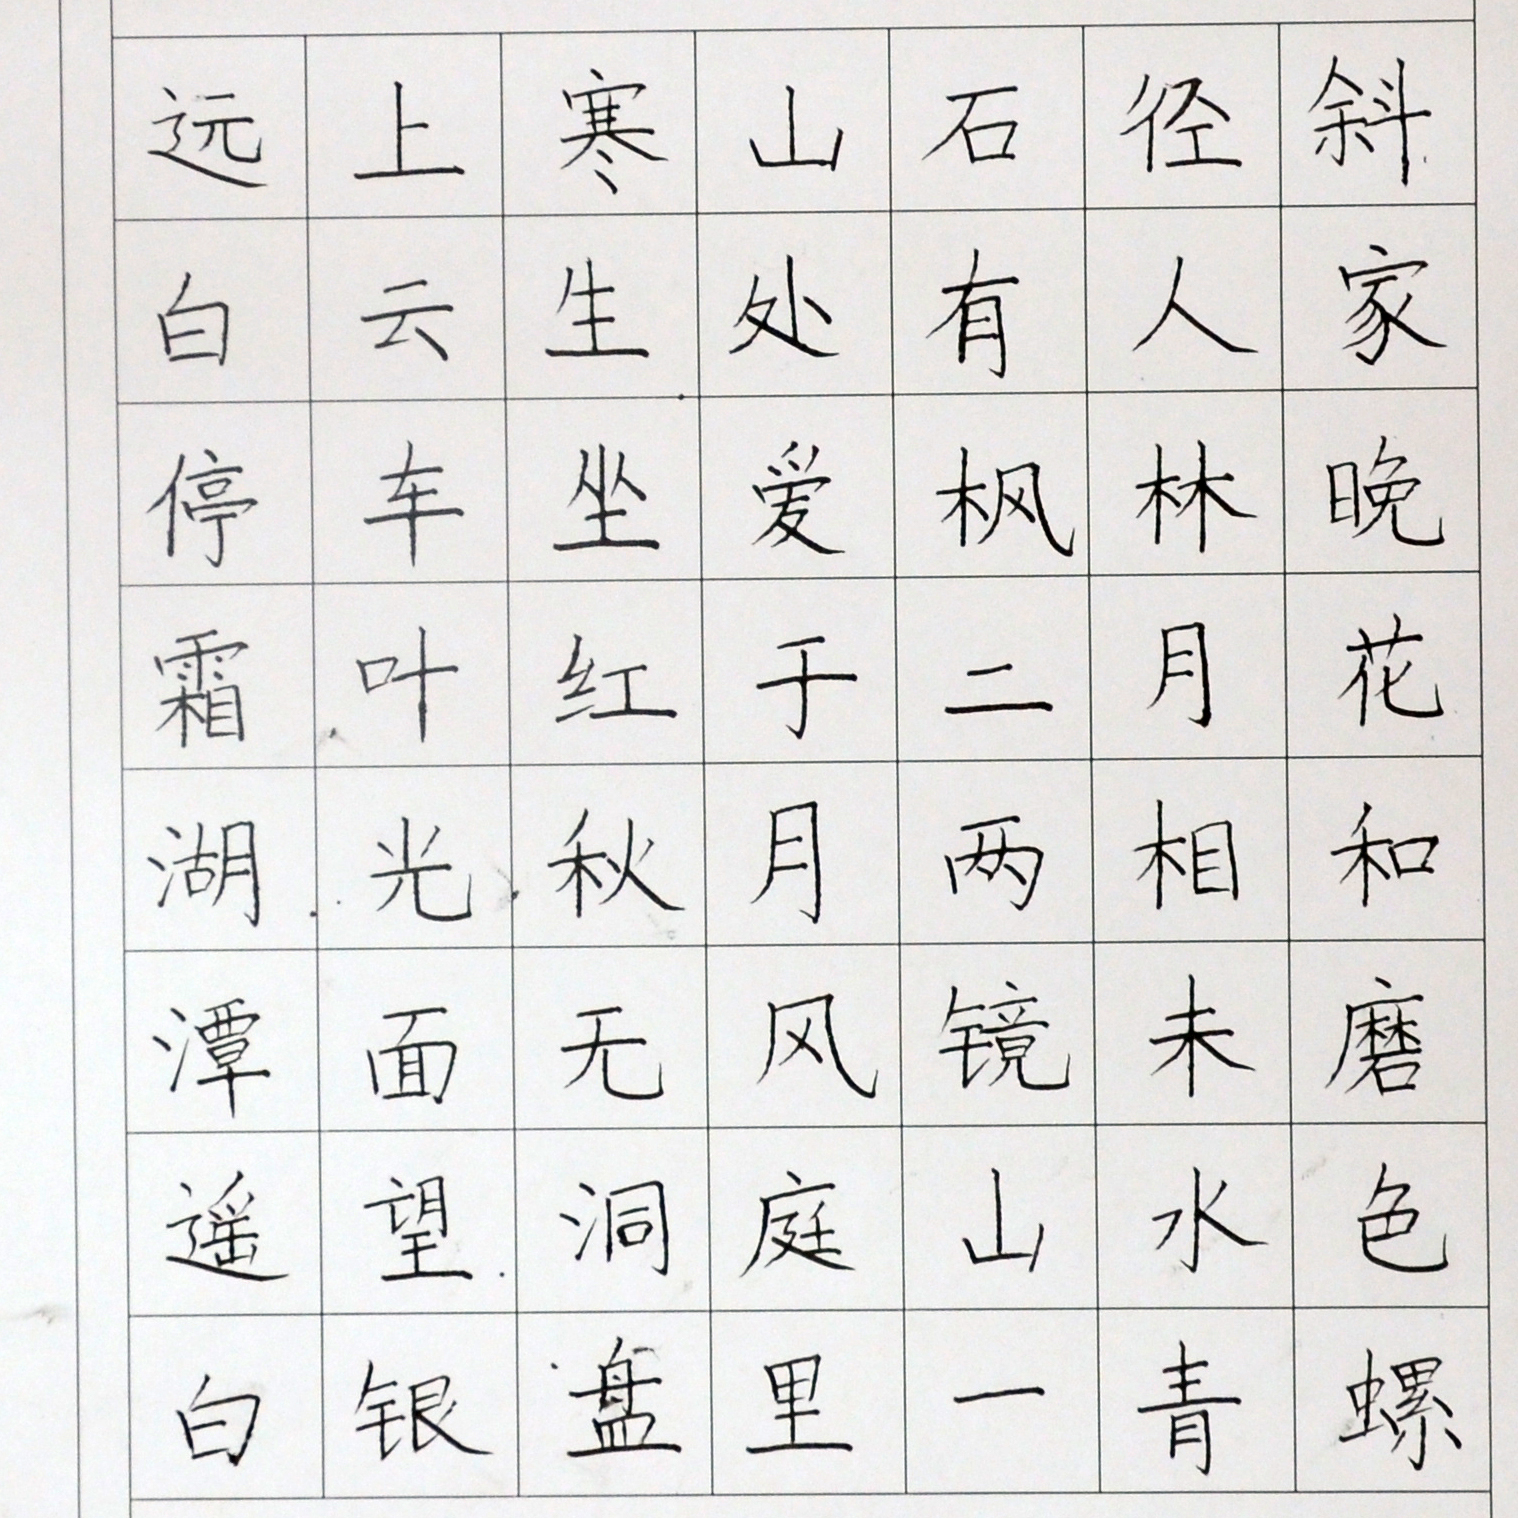 远上寒山石径斜
白云生处有人家
停车坐爱枫林晚
霜叶红于二月花
湖光秋月两相和
潭面无风镜未磨
遥望洞庭山水色
白银盘里一青螺